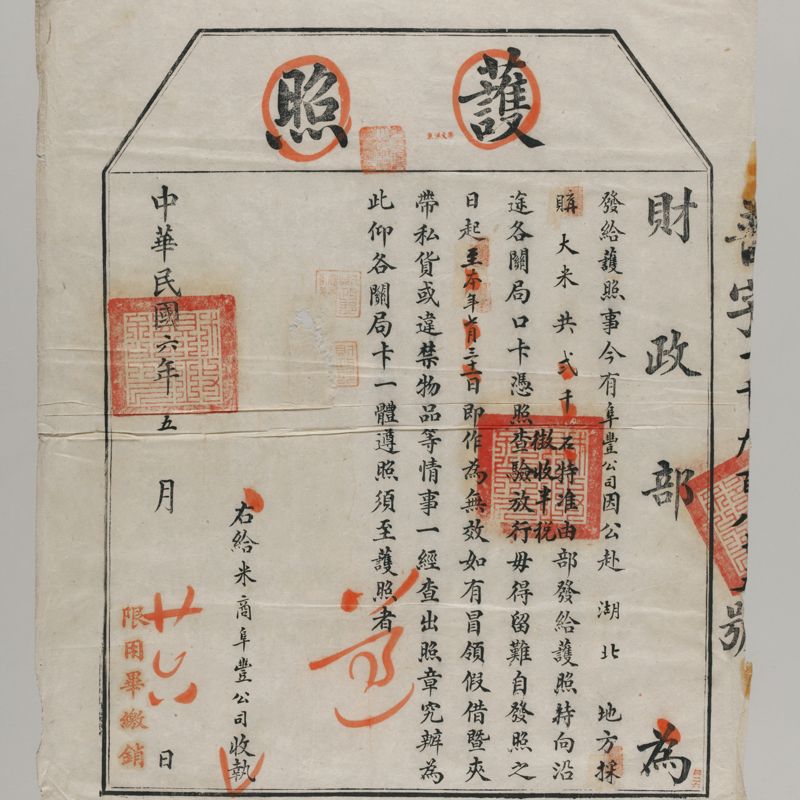 護照
財政部 為
發給護照事今有阜豐公司因公赴 湖北 地方採
購大米共貳千石特准由部發給護照持向沿
徵收半稅
途各關局口卡憑照查驗放行毋得留難自發照之
日起至本年七月三十一日即作為無效如有冒領假借暨夾
帶私貨或違禁物品等情事一經查出照章究辦為
此仰各關局卡一體遵照須至護照者
右給米商阜豐公司收執
中華民國六年五月 日
限用畢繳銷